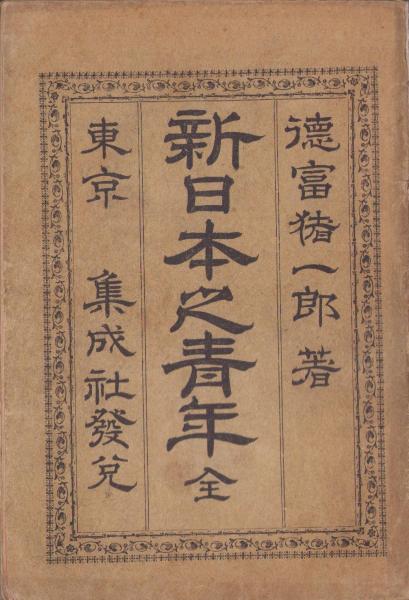 德富猪一郎著
新日本之青年全
東京 集成社發兌